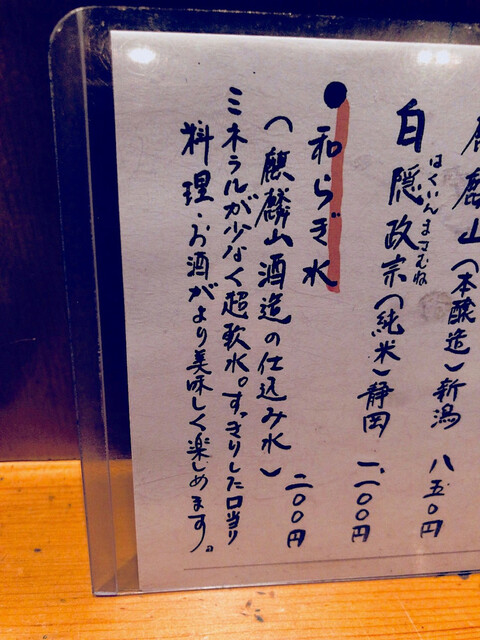 麒麟山(本醸造)新潟 八五〇円
はくいんまさむね
白隠政宗(純米)静岡 一、一〇〇円
●和らぎ水
(麒麟山酒造の仕込み水) 二〇〇円
ミネラルが少なく超軟水。すっきりした口当り
料理・お酒がより美味しく楽しめます。